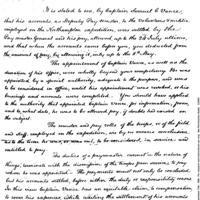 It is stated to me, by Captain Samuel C. Vance,
that his accounts as Deputy Pay master, to the Volunteers & militia
employed on the Northampton expedition, was settled by the
Pay master General and his pay, allowed up to the         July ultimo,
and that when the accounts came before you, you deducted from
the amount of pay, by allowing it, only up to the 5th May.
The appointment of Captain Vance, as well as the
duration of his office, was wholly beyond your competency. He was
appointed, by a special authority, adequate to the purpose, and was
to be considered in office, until his appointment was revoked, or his
business and accounts were completed. You should have applied
to the authority that appointed Captain Vance, for information, from
and to, what date, he was to be allowed pay, if doubts had existed on
the subject.
The muster and pay rolls of the troops, or of the field
and staff, employed on the expedition, are by no means conclusive
as to the time he was, or was not, to be considered, in service and
entitled to pay.
The duties of paymaster cannot in the nature of
things, terminate with the dismission of the troops from service, to pay
whom he was appointed. The payments must not only be concluded,
but his accounts settled, before either the duty or responsibility ceases
In this view Captain Vance has an equitable claim, to compensation
to cover his expences, while awaiting the settlement of his accounts